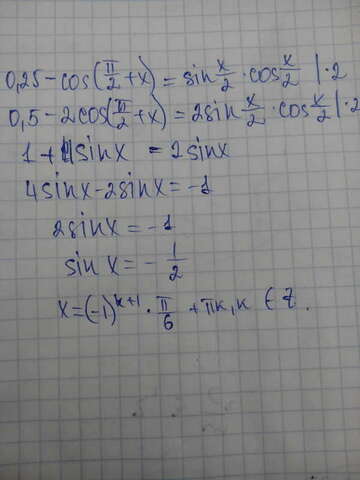 0,25 - cos(π/2 + x) = sin x/2 · cos x/2 | · 2
0,5 - 2cos(π/2 + x) = 2sin x/2 · cos x/2 | · 2
1 + 4sinx = 2sinx
4sinx - 2sinx = -1
2sinx = -1
sin x = - 1/2
x = (-1)^(k+1) · π/6 + πk, k ∈ Z.